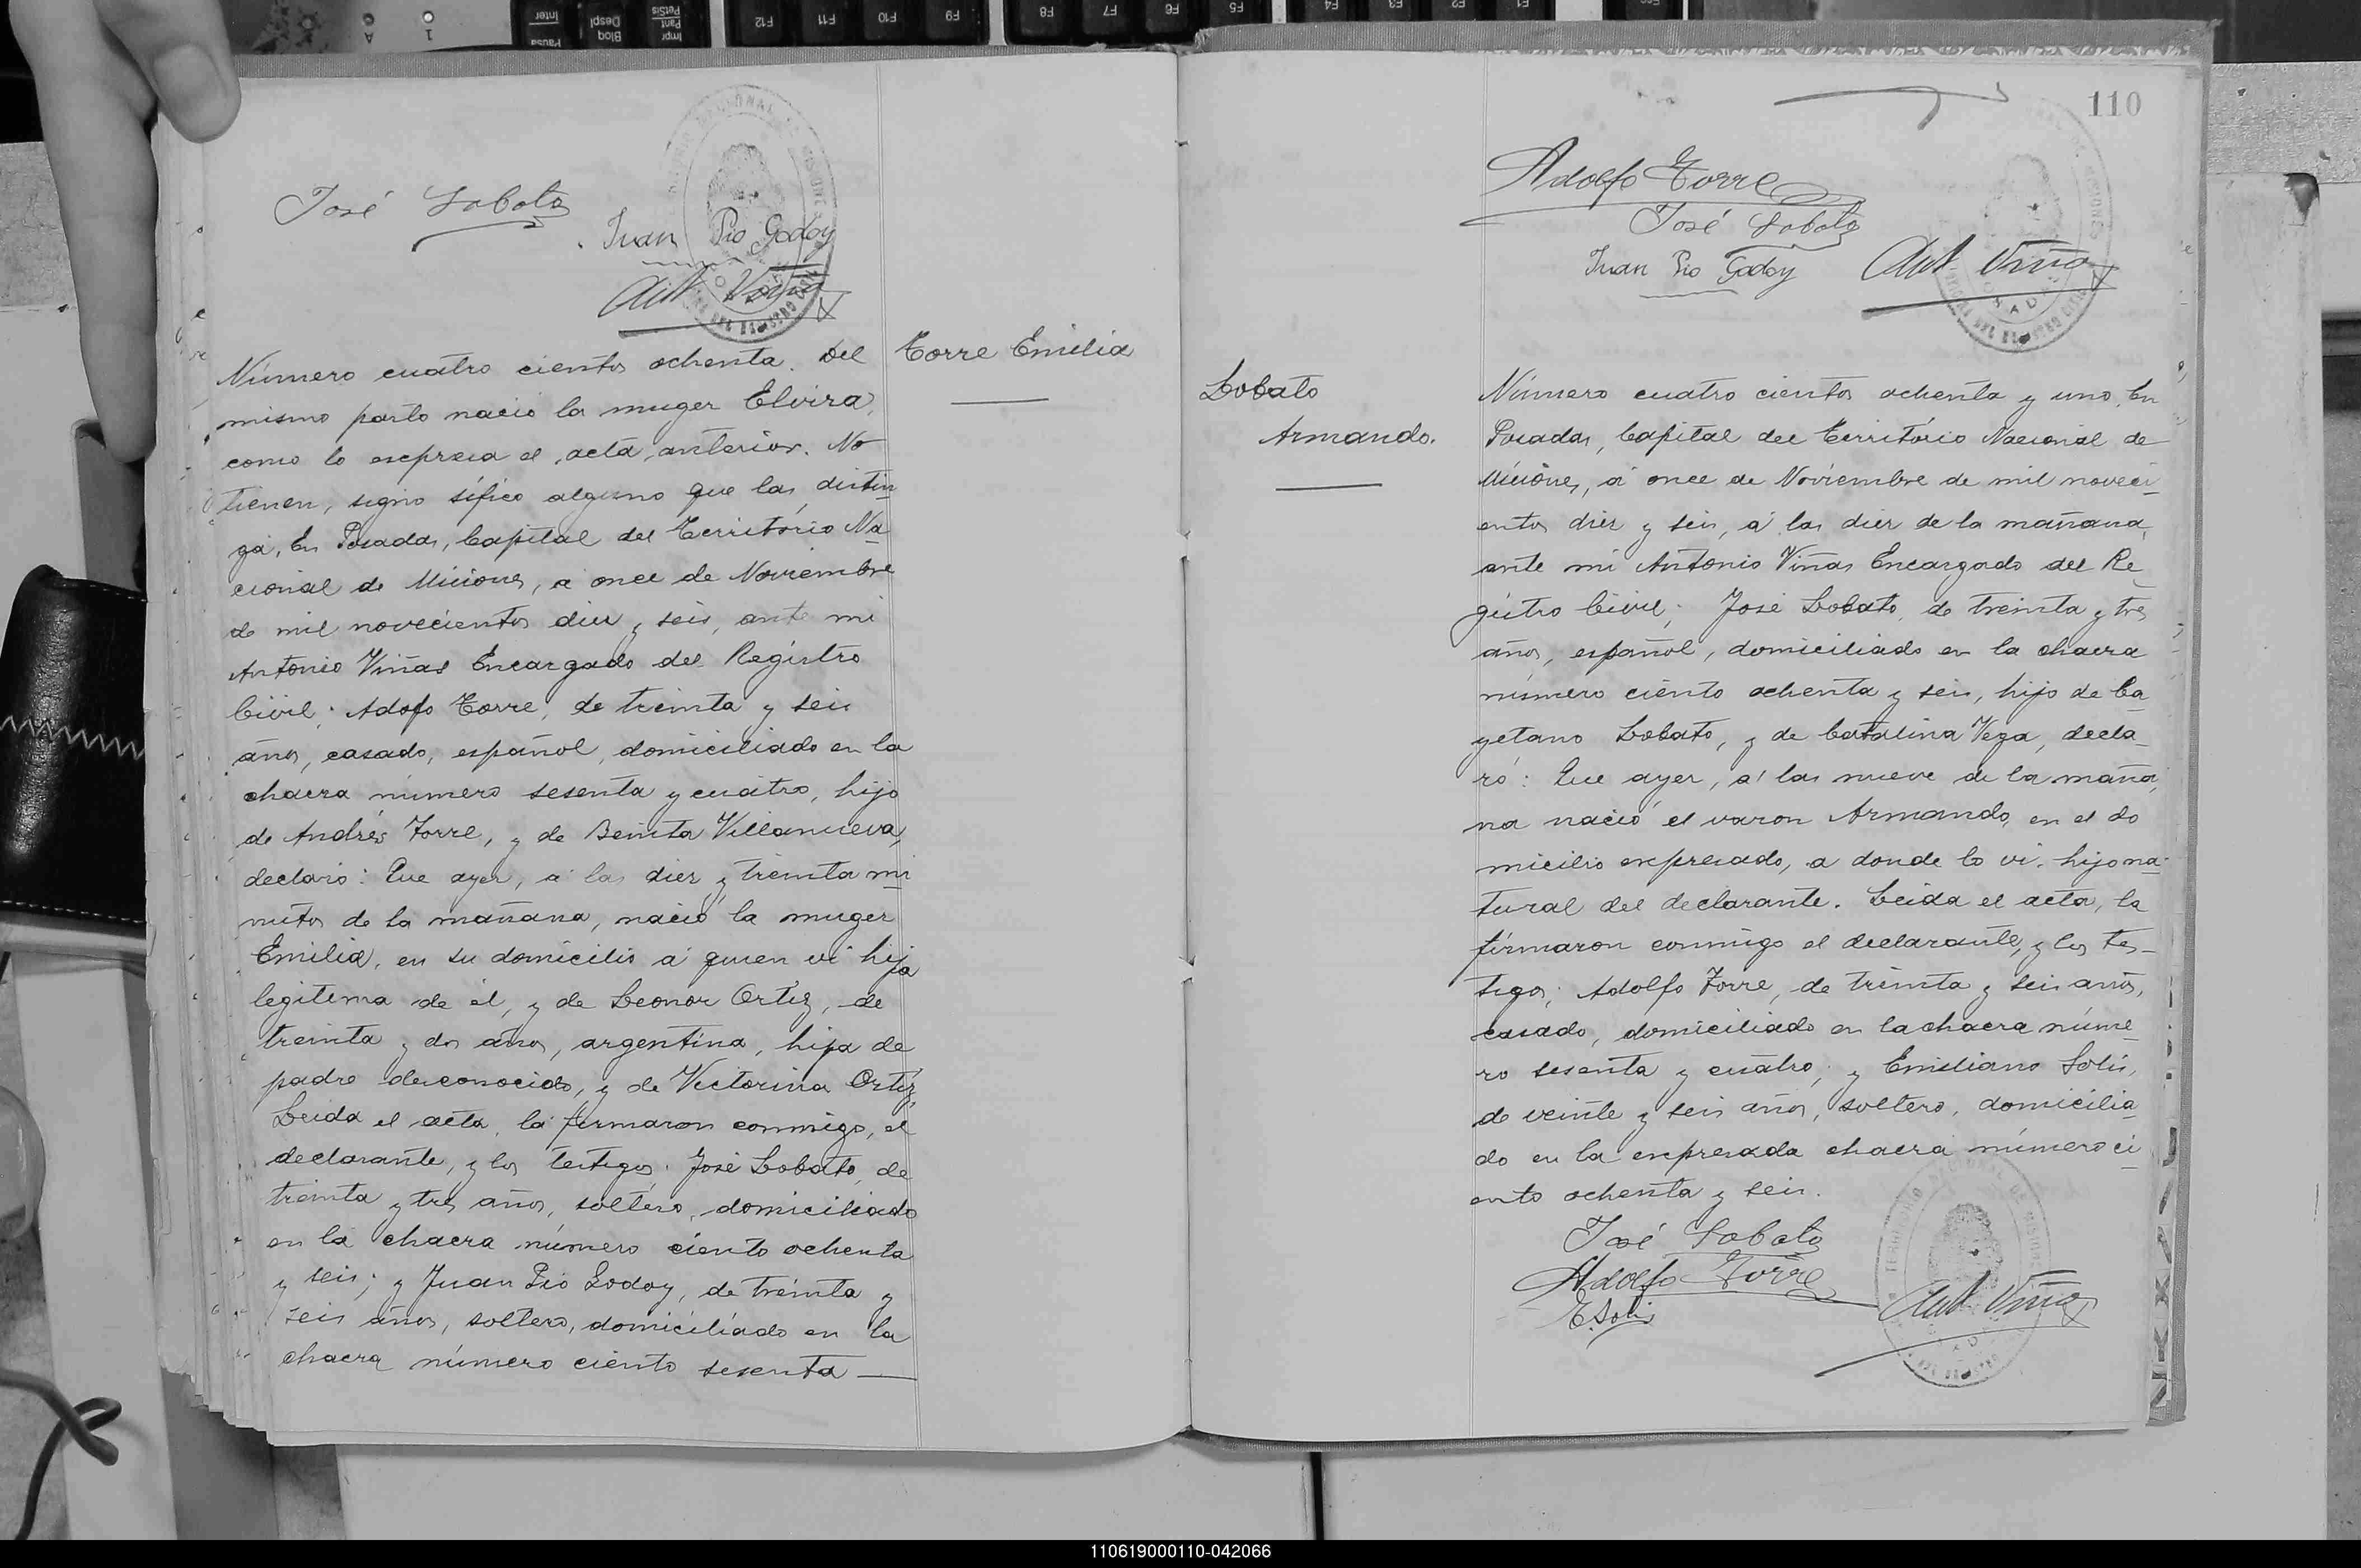 José Lobato
Juan Pio Godoy
Ant. Viñas
Torre Emilia
Número cuatro cientos ochenta. Del
mismo parto nació la muger Elvira,
como lo expresa el acta anterior. No
tienen, signo sífico alguno que las distin
ga, En Posadas, Capital del Território Na
cional de Misiones, a once de Noviembre
de mil novecientos diez y seis, ante mi
Antonio Viñas Encargado del Registro
Civil; Adolfo Torre, de treinta y seis
años, casado, español, domiciliado en la
chacra número sesenta y cuatro, hijo
de Andrés Torre, y de Benita Villanueva,
declaró: Que ayer, a las diez y treinta mi
nutos de la mañana, nació la muger
Emilia, en su domicilio á quien vi hija
legítima de él, y de Leonor Ortiz, de
treinta y dos años, argentina, hija de
padre desconocido, y de Victorina Ortiz,
Leida el acta, la firmaron conmigo, el
declarante, y los testigos: José Lobato, de
treinta y tres años, soltero, domiciliado
en la chacra número ciento ochenta
y seis; y Juan Pio Godoy, de treinta y
seis años, soltero, domiciliado en la
chacra número ciento sesenta —
110
Adolfo Torre
José Lobato
Juan Pio Godoy
Ant. Viñas
Lobato
Armando.
Número cuatro cientos ochenta y uno, En
Posadas, Capital del Território Nacional de
Misiones, á once de Noviembre de mil noveci
entos diez y seis, á las diez de la mañana,
ante mi Antonio Viñas Encargado del Re
gistro Civil; José Lobato, de treinta y tres
años, español, domiciliado en la chacra
número ciento ochenta y seis, hijo de Ca
yetano Lobato, y de Catalina Vega, decla
ró: Que ayer, a las nueve de la maña
na nació el varon Armando, en el do
micilio expresado, a donde lo vi. hijo na
tural del declarante. Leida el acta, la
firmaron conmigo el declarante, y los tes
tigos; Adolfo Torre, de treinta y seis años,
casado, domiciliado en la chacra núme
ro sesenta y cuatro; y Emiliano Solis,
de veinte y seis años, soltero, domicilia
do en la expresada chacra número ci
ento ochenta y seis.
José Lobato
Adolfo Torre
E. Solis
Ant. Viñas
110619000110-042066